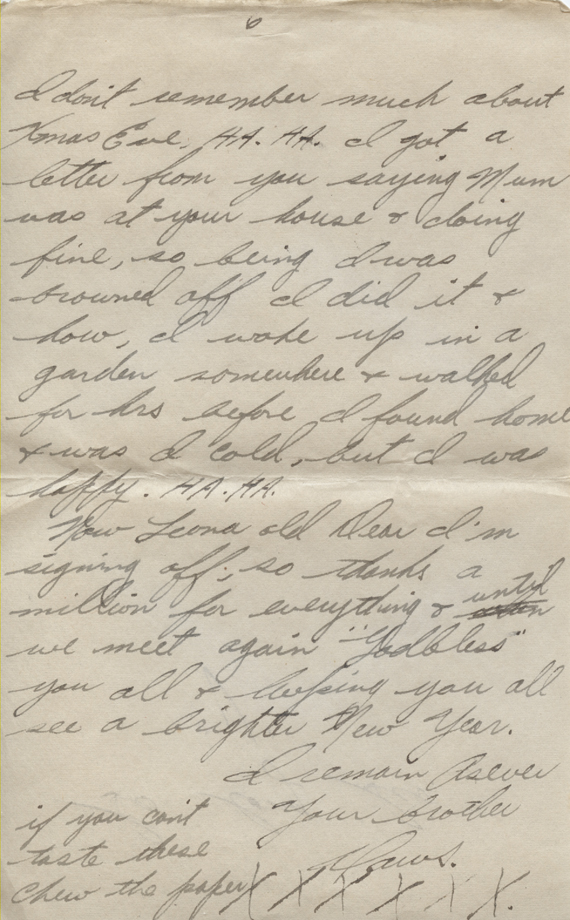 6
I don't remember much about
Xmas Eve. HA. HA. I got a
letter from you saying Mum
was at your house & doing
fine, so being I was
browned off I did it &
how, I woke up in a
garden somewhere & walked
for hrs before I found home
& was I cold, but I was
happy. HA. HA.
Now Leona old Dear I'm
signing off; so thanks a
million for everything & until
we meet again "Godbless"
you all & hoping you all
see a brighter New Year.
I remain Asever
Your brother
if you can't
taste these
chew the paper X X X X X X.